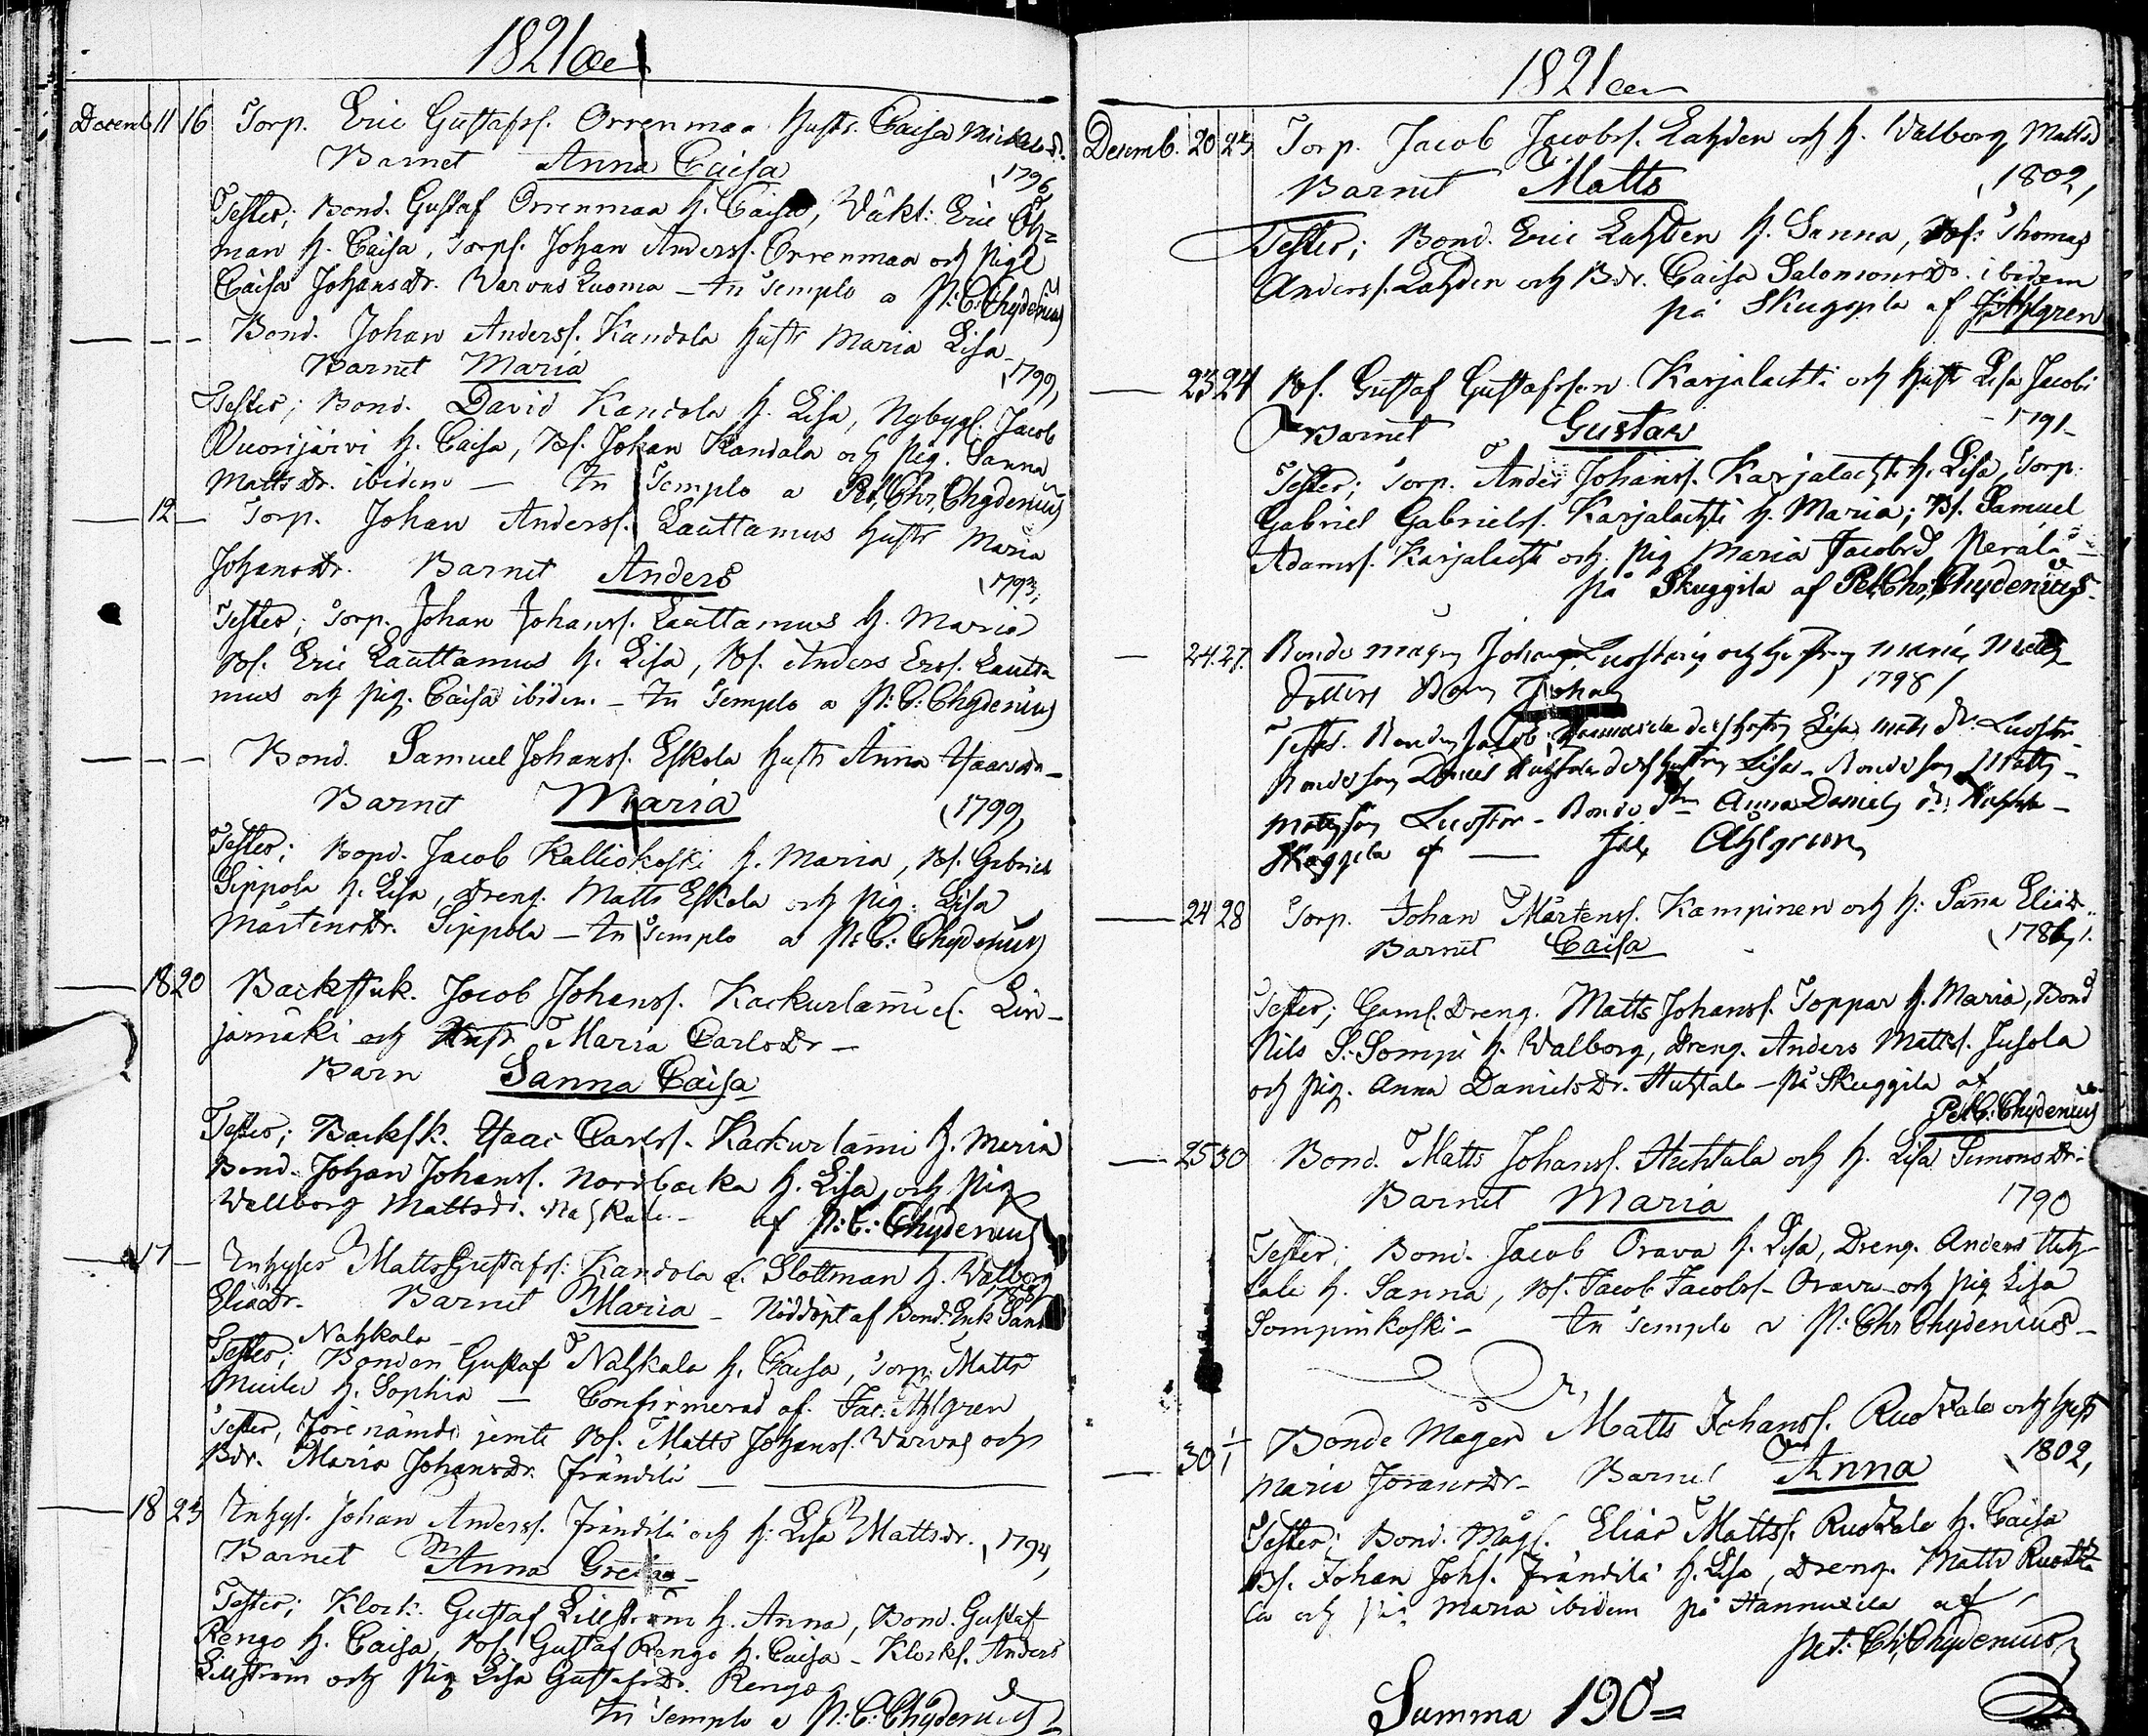 1821
Decemb 11 16 Torp. Eric Gustafss. Orrenmaa Hustr. Caisa Mickelsd.
Barnet Anna Caisa 1796
Tester; Bond. Gustaf Orrenmaa h. Caisa, Väkt: Eric Öh=
man h. Caisa, Torps. Johan Anderss. Orrenmaa och Pig.
Caisa Johansdr. Varvas Luoma – In Templo a P: C: Chydenius
– – – Bond. Johan Anderss. Kandola Hustr Maria Lisa
Barnet Maria 1799,
Tester; Bond. David Kandola h. Lisa, Nybygg. Jacob
Vuorijärvi h. Caisa, Bs. Johan Kandola och Pig. Sanna
Mattsdr. ibidem – In Templo a Pet, Chr, Chydenius
– 12 – Torp. Johan Anderss. Lauttamus Hustr Maria
Johansdr. Barnet Anders 1793,
Tester; Torp. Johan Johanss. Lauttamus h. Maria
Bs. Eric Lauttamus h. Lisa, Bs. Anders Erss. Lautta
mus och Pig. Caisa ibidem. – In Templo a P: C: Chydenius
– – – Bond. Samuel Johanss. Eskola Hustr Anna Isaacsdr –
Barnet Maria 1799,
Tester; Bond. Jacob Kalliokoski h. Maria, Bs. Gabriel
Sippola h. Lisa, Dreng. Matts Eskola och Pig. Lisa
Mårtensdr. Sippola – In Templo a P: C: Chydenius
– 18 20 Backstuk. Jacob Johanss. Kackurlammi
jamäki och Hustr Maria Carlsdr –
Barn Sanna Caisa
Tester; Backstk. Isaac Carlss. Kackurlammi h. Maria
Bond. Johan Johanss. Norrbacka h. Lisa, och Pig
Vallborg Mattsdr. af P: C: Chydenius
– 17 – Inhyses Matts Gustafss: Kandola Slottman h. Valborg
Eliædr. Barnet Maria – Nöddöpt af Bond. Enk Sanna
Nahkala –
Tester; Bonden Gustaf Nahkala h. Caisa, Torp. Matts
h. Sophia – Confirmerad af Jac: Ahlgren
Tester, Förenämde jemte Bs. Matts Johanss. Varvas och
Bdr. Maria Johansdr. Frändilä
– 18 23 Inhys. Johan Anderss. Frändilä och h: Lisa Mattsdr. 1794,
Barnet Anna Greta –
Tester; Klock. Gustaf Lillström h. Anna, Bond. Gustaf
Rengo h. Caisa, Bs. Gustaf Rengo h. Caisa – Klocks. Anders
Lillström och Pig Lisa Gustafsdr. Rengo
In Templo a P: C: Chydenius
1821
Decemb. 20 23 Torp. Jacob Jacobss. Lahden och h. Valborg Mattsd
Barnet Matts 1802,
Tester; Bond. Eric Lahden h. Sanna, Bs: Thomas
Anderss. Lahden och Bdr. Caisa Salomonsdr. ibidem
på af J: Ahlgren
– 23 24 Bs. Gustaf Gustafsson Karjalachti och Hustr Lisa Jacobs
Barnet Gustav – 1791 –
Tester; Torp. Anders Johanss. Karjalachti h. Lisa, Torp.
Gabriel Gabrielss. Karjalachti h. Maria; Bs. Samuel
Adamss. Karjalachti och Pig Maria Jacobsd Perälä –
på Skuggila af Pet, Chr, Chydenius –
– 24 27. Bonde magen Johan och hustrun Maria Matts
dotter Barn Johan 1798
Test. Bonden Jacob dess hustru Lisa Matsdr. Luostar.
Bondeson Daniel Huhtala dess hustru Lisa – Bondeson Matts –
Matsson Luostar – Bondedtr Anna Daniels dr. –
Skuggila af – Jac Ahlgren
– 24 28 Torp. Johan Mårtenss. Kampinen och h: Sanna Eliæd.
Barnet Caisa 1786,
Tester; Gaml. Dreng. Matts Johanss. Toppar h. Maria, Bond
Nils S. Sompi h. Valborg, Dreng. Anders Mattss. Jusola
och Pig. Anna Danielsdr. Huhtala – på Skuggila af
Pet. C: Chydenius
– 25 30 Bond. Matts Johanss. Huhtala och h. Lisa Simonsdr.
Barnet Maria 1790
Tester; Bond. Jacob Orava h. Lisa, Dreng. Anders Huh-
tala h. Sanna, Bs. Jacob Jacobss. Orava och Pig Lisa
Sompinkoski – In Templo a P: Chr Chydenius –
– 30 1/1 Bonde Mågen Matts Johanss. Ruokala och Hust
Maria Joransdr – Barnet Anna 1802,
Tester; Bond. Mågs. Elias Mattss. Ruokala h. Caisa
Bs. Johan Johs. Frändilä h. Lisa, Dreng. Matts Ruoka
la och Pig Maria ibidem på Hannuxela af
Pet: Ch, Chydenius
Summa 190 =